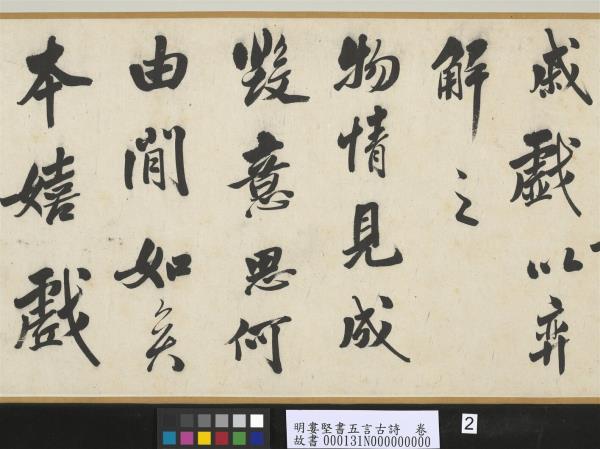 戚戲以弈
解之
物情見成
毀意思何
由閒如奕
本嬉戲
明婁堅書五言古詩 卷
故書000131N000000000
2